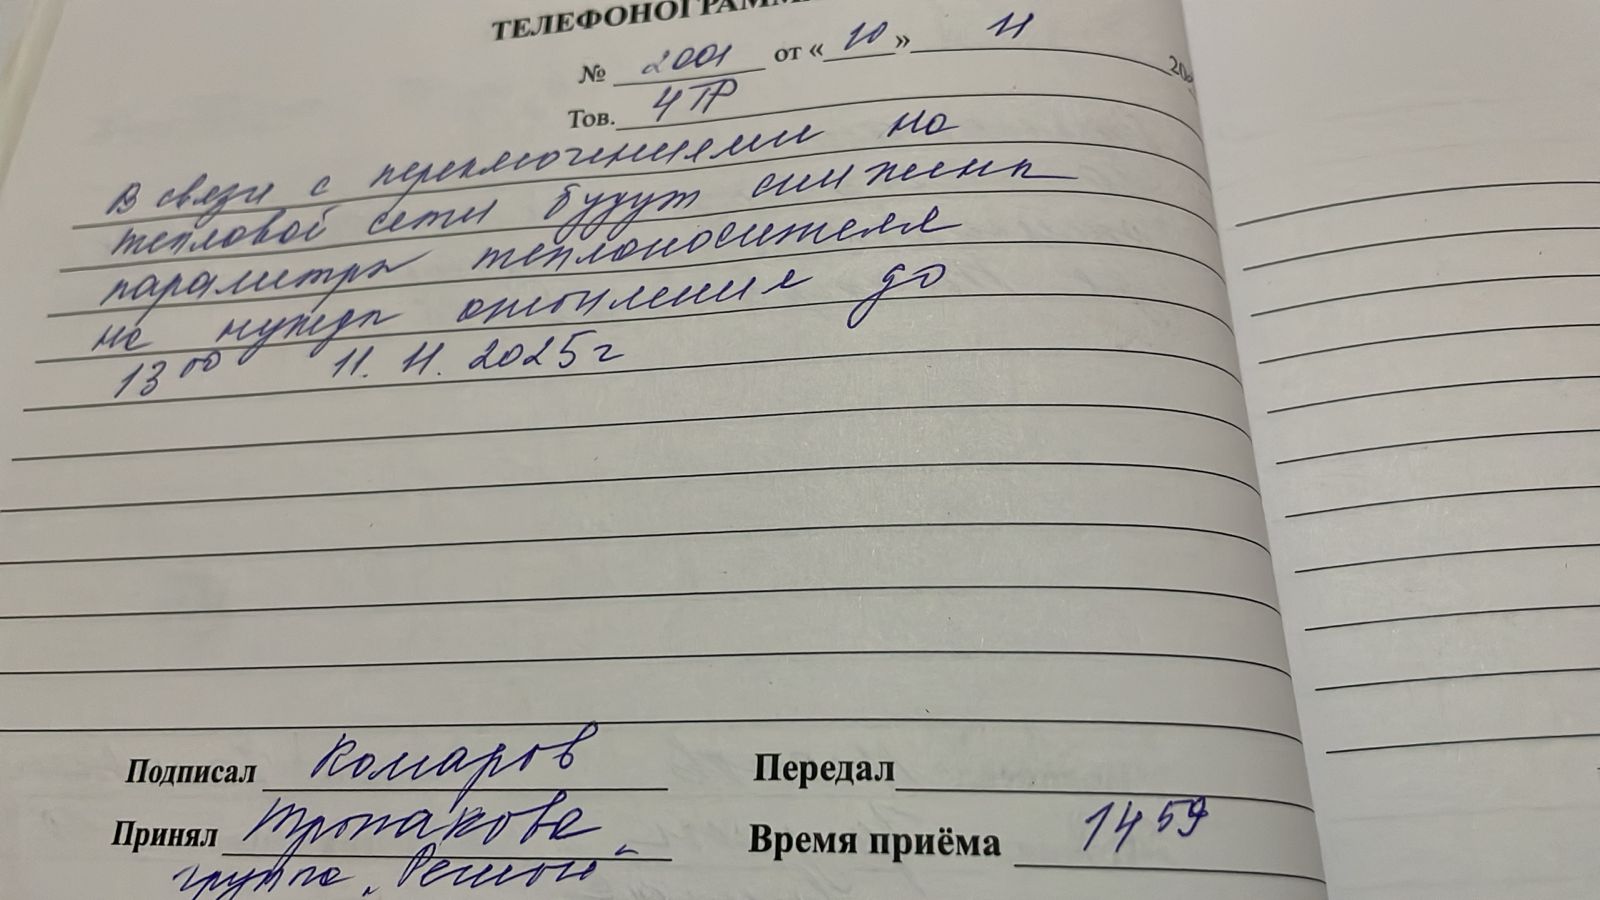 ТЕЛЕФОНОГРАММ
№ 2001 от « 10 » 11 20
Тов. 4ТР
В связи с переключениями на
тепловой сети будут снижены
параметры теплоносителя
на нужды отопления до
13 00 11. 11. 2025г
Подписал Комаров Передал
Принял Тропакова Время приёма 14 59
группа „Регион“